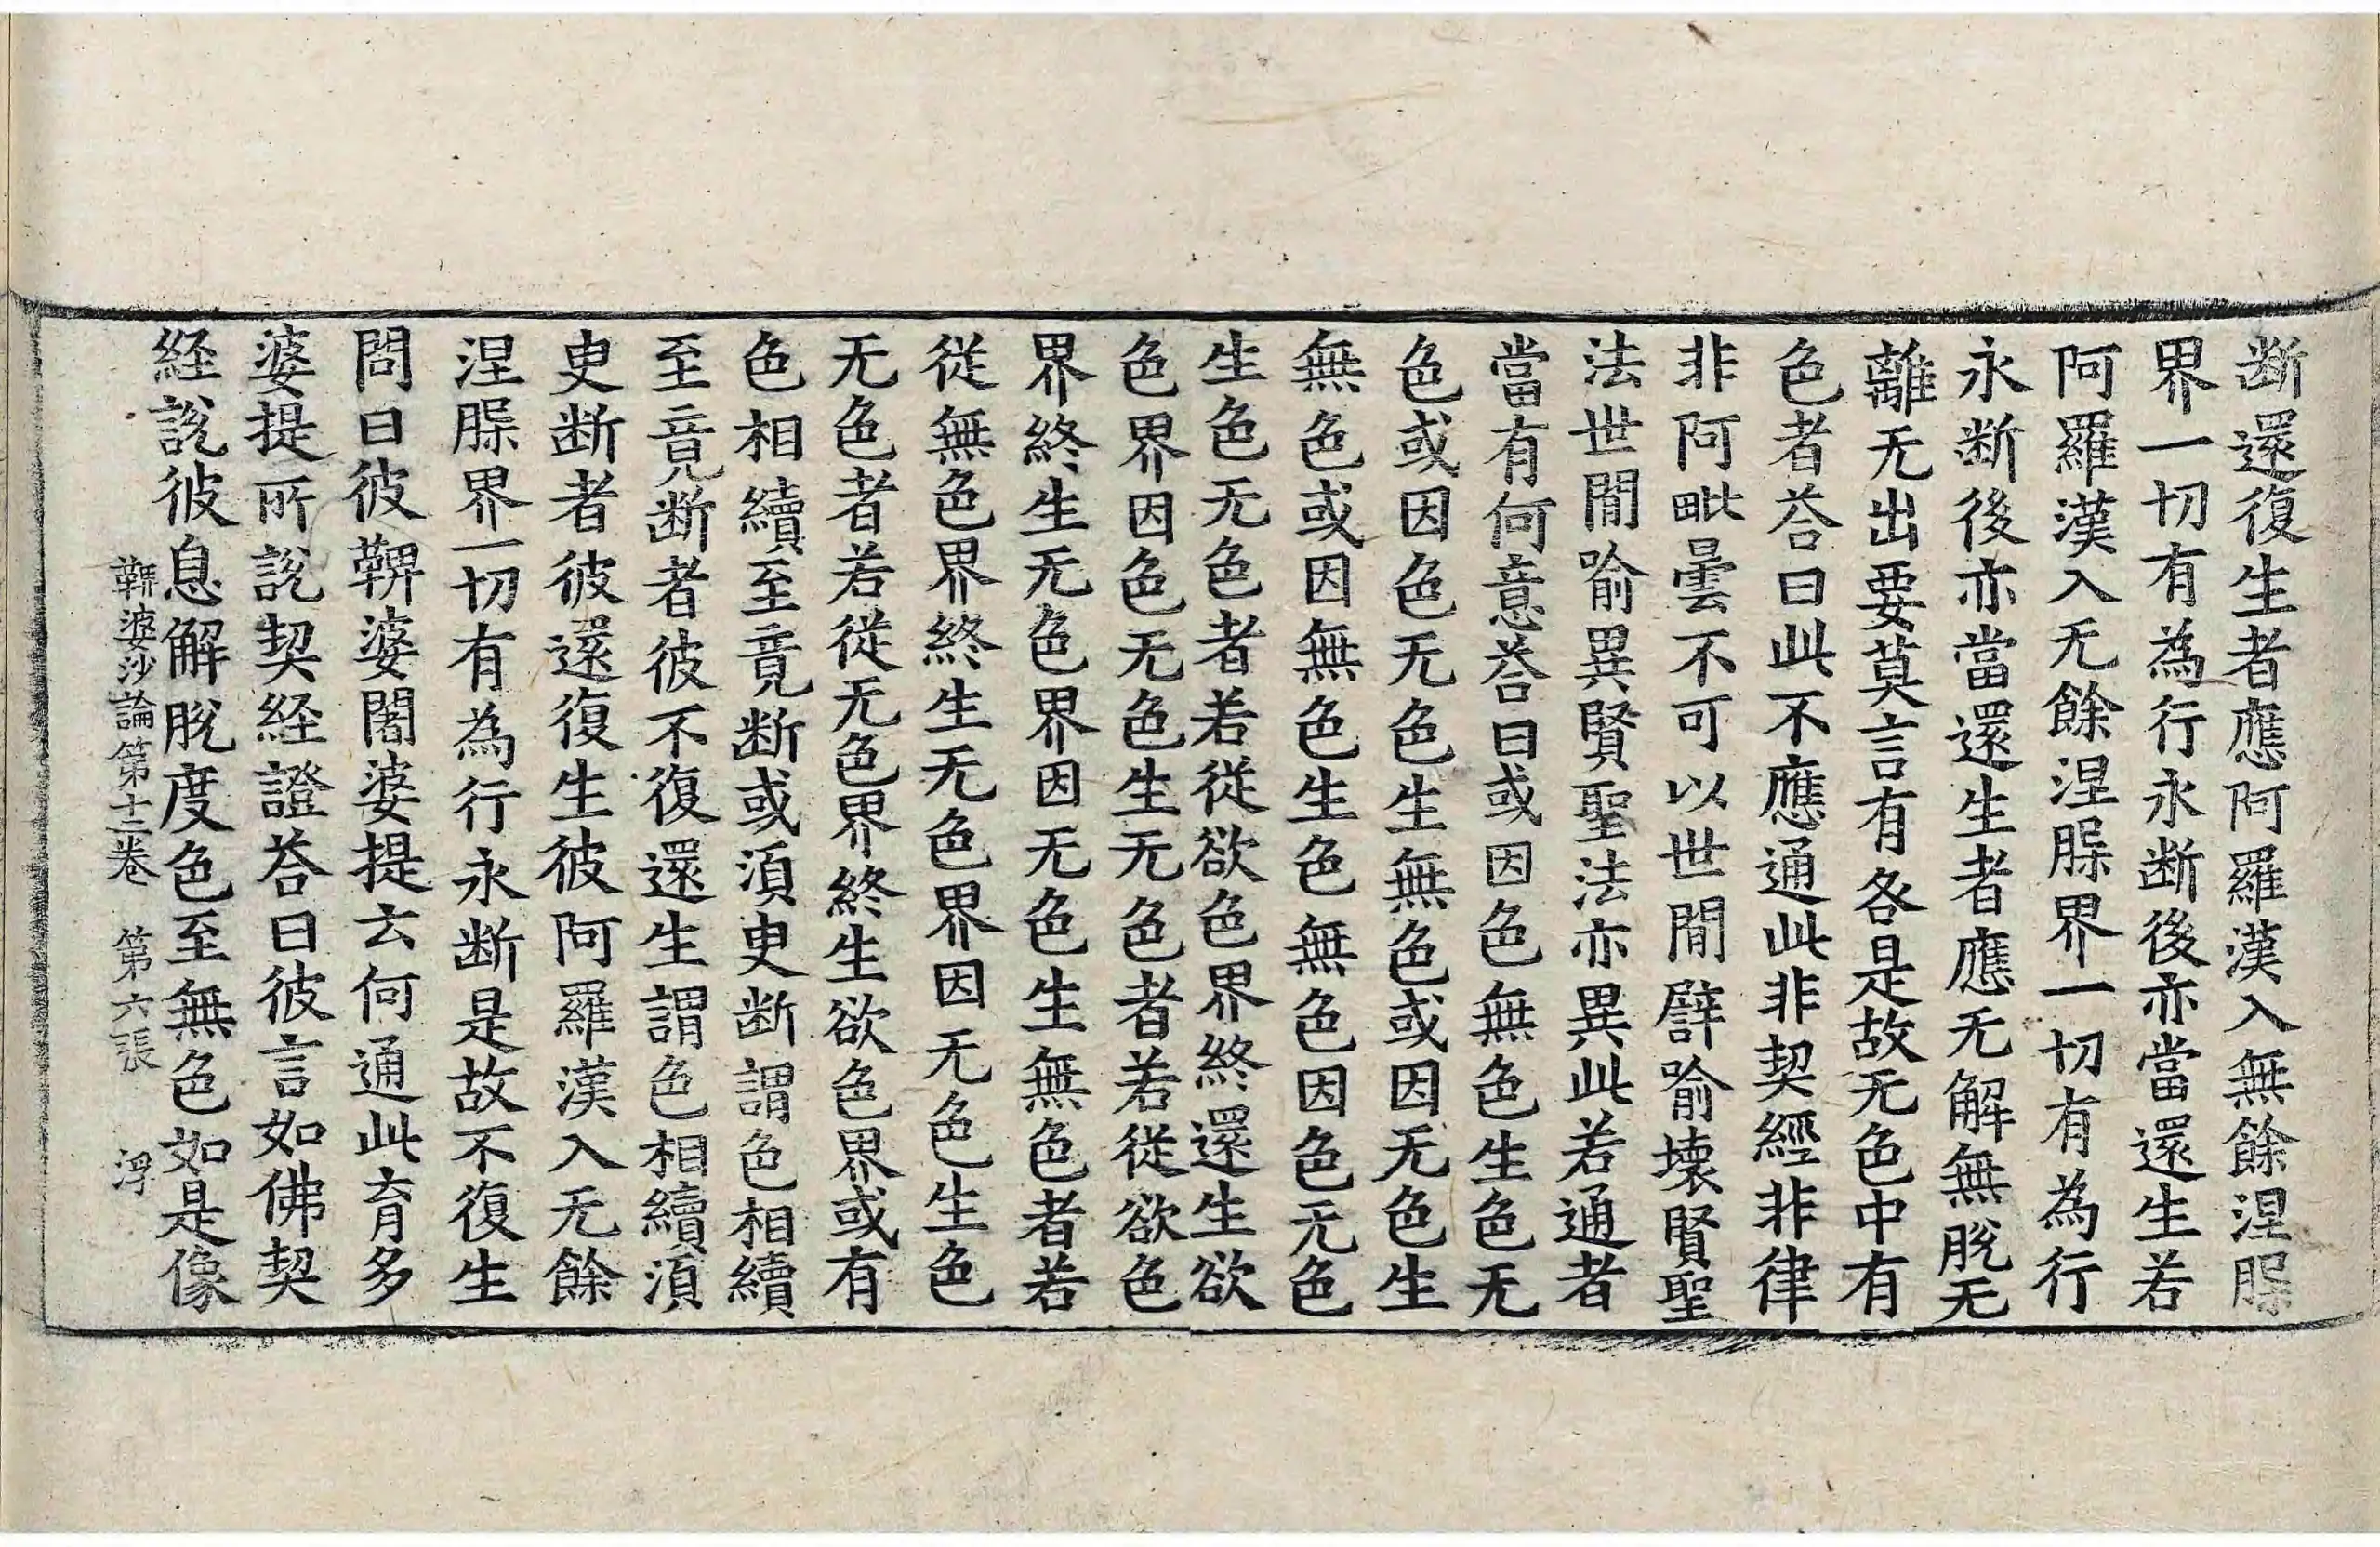 断還復生者應阿羅漢入無餘涅𣵀
界一切有為行永断後亦當還生若
阿羅漢入无餘涅𣵀界一切有為行
永断後亦當還生者應无解無脫无
離无出要莫言有各是故无色中有
色者荅曰此不應通此非契經非律
非阿毗曇不可以世間譬喻壞賢聖
法世間喻異賢聖法亦異此若通者
當有何意荅曰或因色無色生色无
色或因色无色生無色或因无色生
無色或因無色生色無色因色无色
生色无色者若從欲色界終還生欲
色界因色无色生无色者若從欲色
界終生无色界因无色生無色者若
從無色界終生无色界因无色生色
无色者若從无色界終生欲色界或有
色相續至竟断或須臾断謂色相續
至竟断者彼不復還生謂色相續須
臾断者彼還復生彼阿羅漢入无餘
涅𣵀界一切有為行永断是故不復生
問曰彼鞞婆闍婆提云何通此育多
婆提所說契経證荅曰彼言如佛契
経說彼息解脫度色至無色如是像
鞞婆沙論第十三卷　第六張　浮